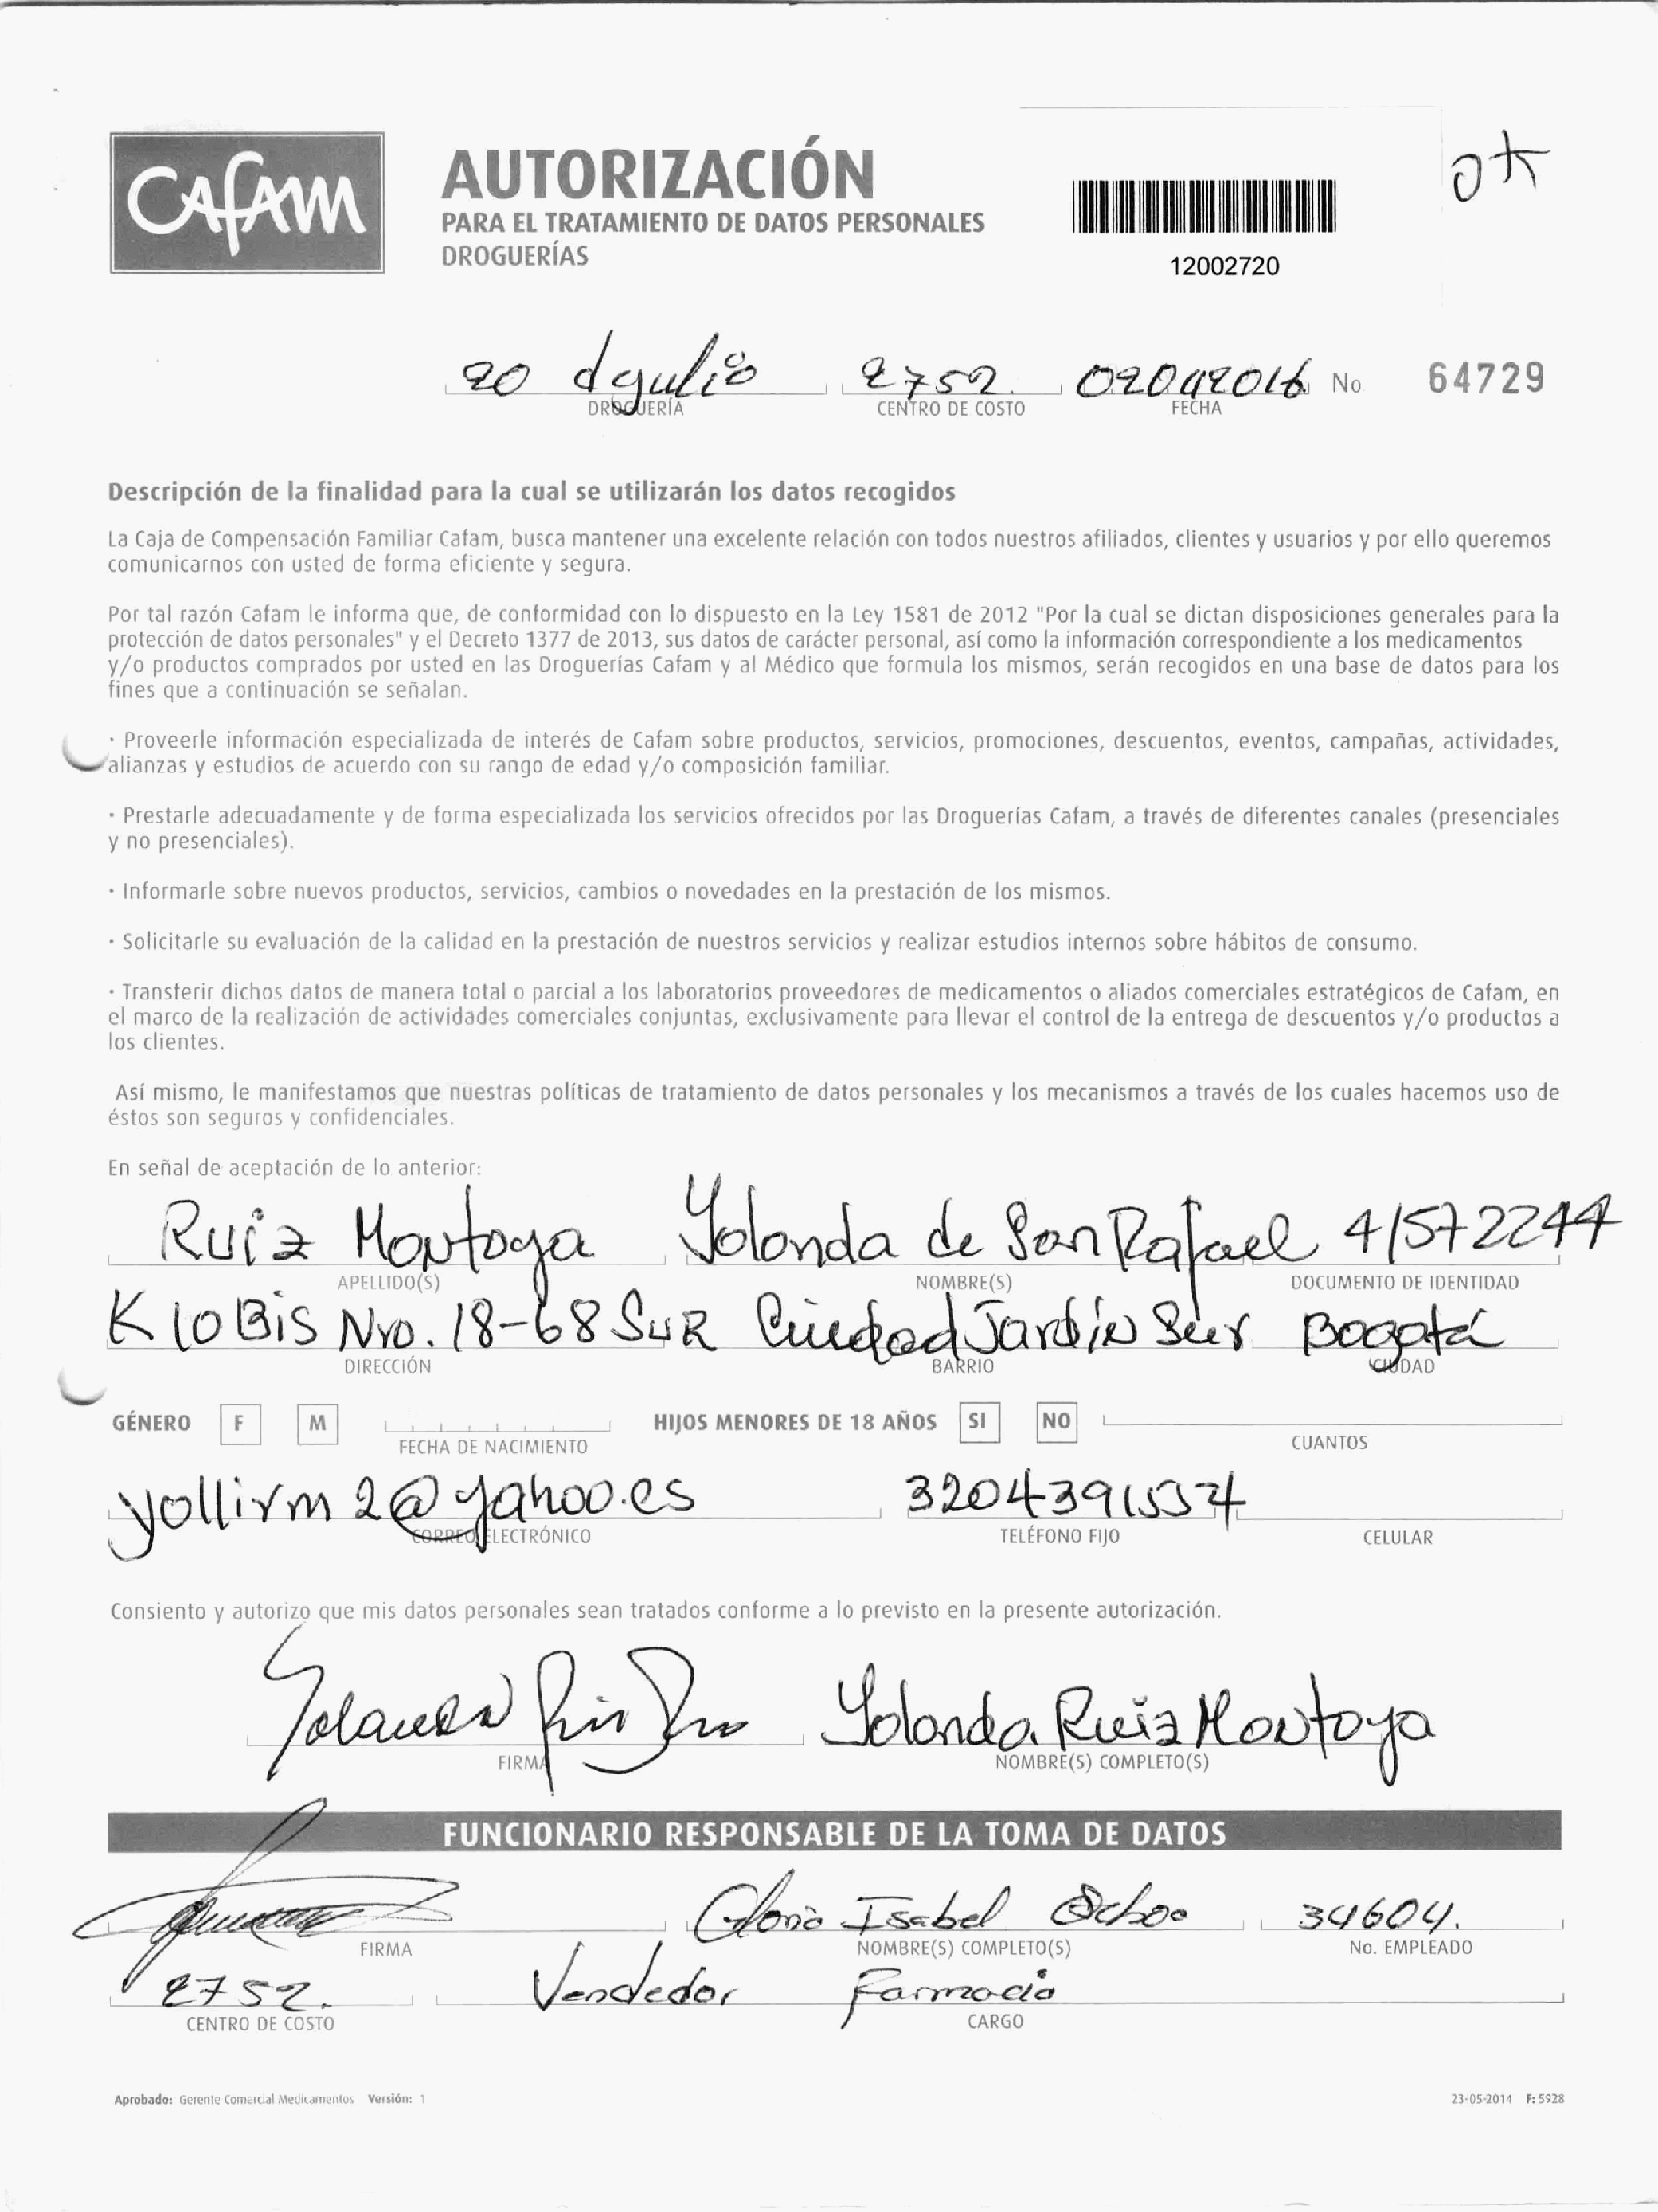 CAFAM
AUTORIZACIÓN
PARA EL TRATAMIENTO DE DATOS PERSONALES
DROGUERÍAS
12002720
ok
20 d julio 2752. 02042016 No 64729
DROGUERÍA CENTRO DE COSTO FECHA
Descripción de la finalidad para la cual se utilizarán los datos recogidos
La Caja de Compensación Familiar Cafam, busca mantener una excelente relación con todos nuestros afiliados, clientes y usuarios y por ello queremos
comunicarnos con usted de forma eficiente y segura.
Por tal razón Cafam le informa que, de conformidad con lo dispuesto en la Ley 1581 de 2012 "Por la cual se dictan disposiciones generales para la
protección de datos personales" y el Decreto 1377 de 2013, sus datos de carácter personal, así como la información correspondiente a los medicamentos
y/o productos comprados por usted en las Droguerías Cafam y al Médico que formula los mismos, serán recogidos en una base de datos para los
fines que a continuación se señalan.
· Proveerle información especializada de interés de Cafam sobre productos, servicios, promociones, descuentos, eventos, campañas, actividades,
alianzas y estudios de acuerdo con su rango de edad y/o composición familiar.
· Prestarle adecuadamente y de forma especializada los servicios ofrecidos por las Droguerías Cafam, a través de diferentes canales (presenciales
y no presenciales).
· Informarle sobre nuevos productos, servicios, cambios o novedades en la prestación de los mismos.
· Solicitarle su evaluación de la calidad en la prestación de nuestros servicios y realizar estudios internos sobre hábitos de consumo.
· Transferir dichos datos de manera total o parcial a los laboratorios proveedores de medicamentos o aliados comerciales estratégicos de Cafam, en
el marco de la realización de actividades comerciales conjuntas, exclusivamente para llevar el control de la entrega de descuentos y/o productos a
los clientes.
Así mismo, le manifestamos que nuestras políticas de tratamiento de datos personales y los mecanismos a través de los cuales hacemos uso de
éstos son seguros y confidenciales.
En señal de aceptación de lo anterior:
Ruiz Montoya Yolonda de San Rafael 41572244
APELLIDO(S) NOMBRE(S) DOCUMENTO DE IDENTIDAD
K 10 Bis Nro. 18-68 SUR Ciudad Jardín Sur Bogotá
DIRECCIÓN BARRIO CIUDAD
GÉNERO F M HIJOS MENORES DE 18 AÑOS SI NO
FECHA DE NACIMIENTO CUANTOS
yollirm2@yahoo.es 3204391557
CORREO ELECTRÓNICO TELÉFONO FIJO CELULAR
Consiento y autorizo que mis datos personales sean tratados conforme a lo previsto en la presente autorización.
Yolonda Ruiz Montoya
FIRMA NOMBRE(S) COMPLETO(S)
FUNCIONARIO RESPONSABLE DE LA TOMA DE DATOS
Gloria Isabel Ochoa 34604.
FIRMA NOMBRE(S) COMPLETO(S) No. EMPLEADO
2752. Vendedor Farmacia
CENTRO DE COSTO CARGO
Aprobado: Gerente Comercial Medicamentos Versión: 1 23-05-2014 F: 5928